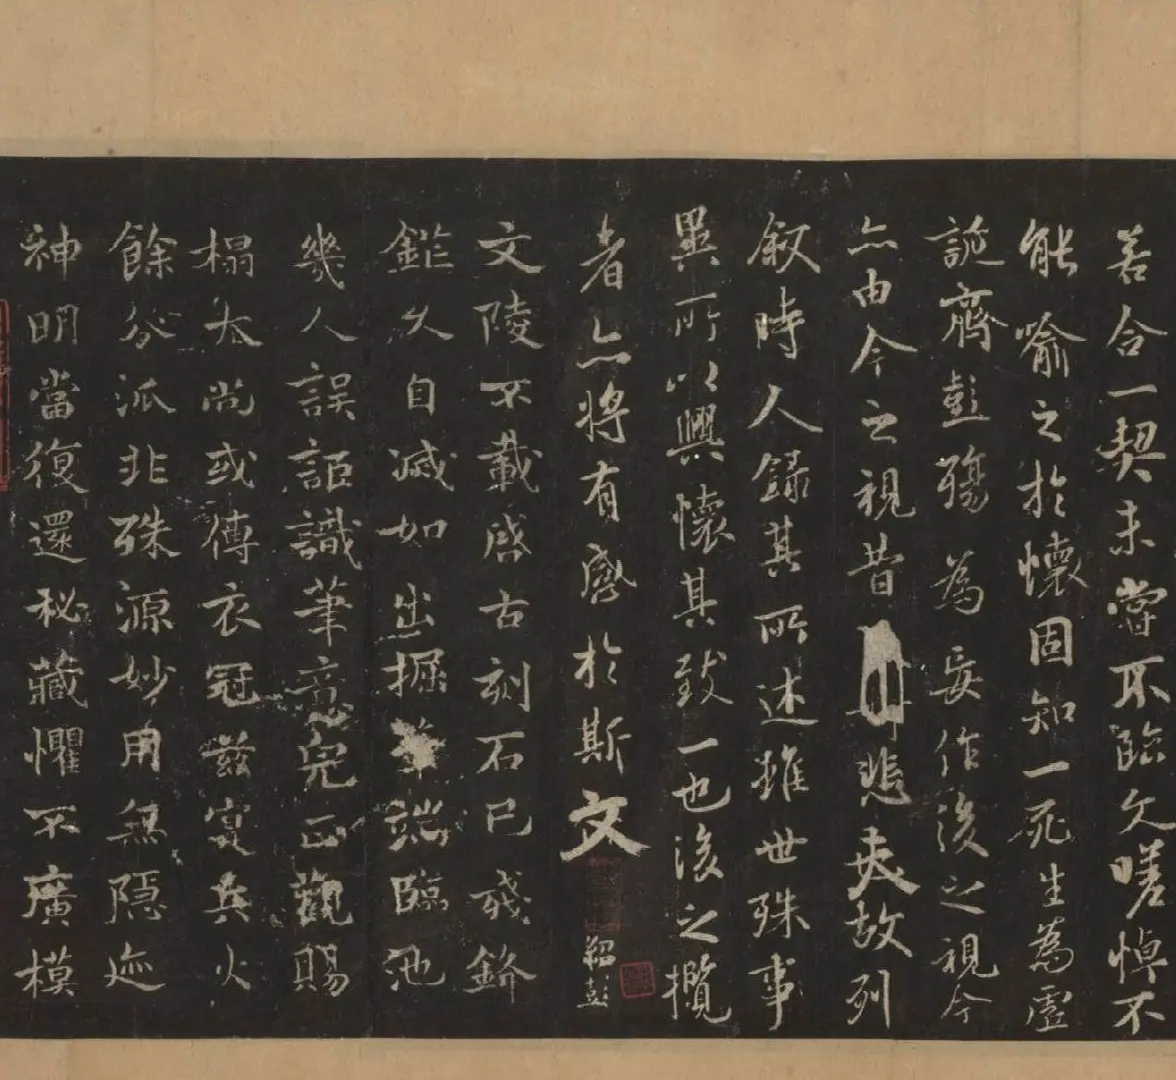 若合一契未嘗不臨文嗟悼不
能喻之於懷固知一死生為虛
誕齊彭殤為妄作後之視今
亦由今之視昔悲夫故列
叙時人錄其所述雖世殊事
異所以興懷其致一也後之攬
者亦將有感於斯文
紹彭
文陵不載啓古刻石已殘鋒
鋩久自滅如出掘筆端臨池
幾人誤詎識筆意完正觀賜
搨本尚或傳衣冠茲寔兵火
餘分派非殊源妙用無隱迹
神明當復還秘藏懼不廣模